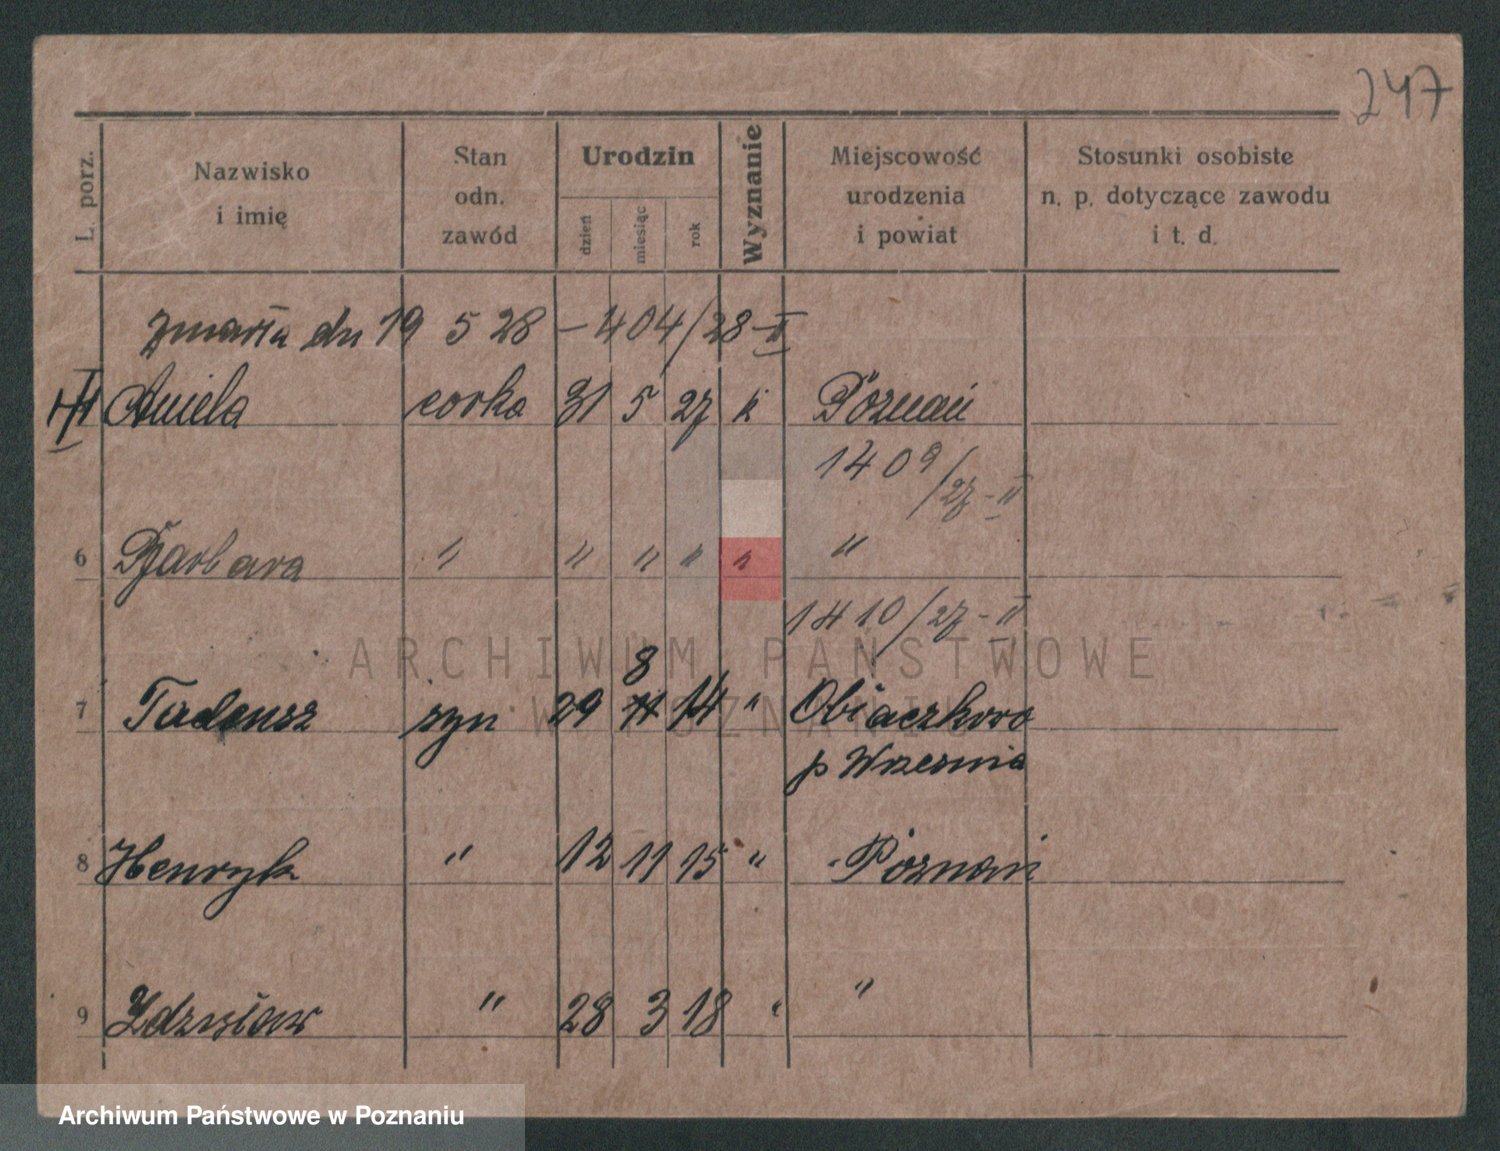 247
L. porz. Nazwisko i imię Stan odn. zawód Urodzin dzień miesiąc rok Wyznanie Miejscowość urodzenia i powiat Stosunki osobiste n. p. dotyczące zawodu i t. d.
zmarła dn 19 5 28 – 404/28 – II
Aniela corka 31 5 27 k Poznań
1409/27 – II
6 Barbara " " " " " "
1410/27 – II
8
7 Tadeusz syn 29 11 14 " Obiaczkowo
p Wrzesnia
8 Henryk " 12 11 15 " Poznań
9 Zdzisław " 28 3 18 " "
ARCHIWUM PAŃSTWOWE
W POZNANIU
Archiwum Państwowe w Poznaniu